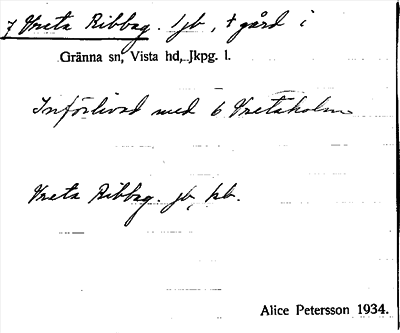 7 Vreta Ribbag. 1 jb, † gård i
Gränna sn, Vista hd, Jkpg. l.
Införlivad med 6 Vretaholm
Vreta Ribbag. jb, kb.
Alice Petersson 1934.